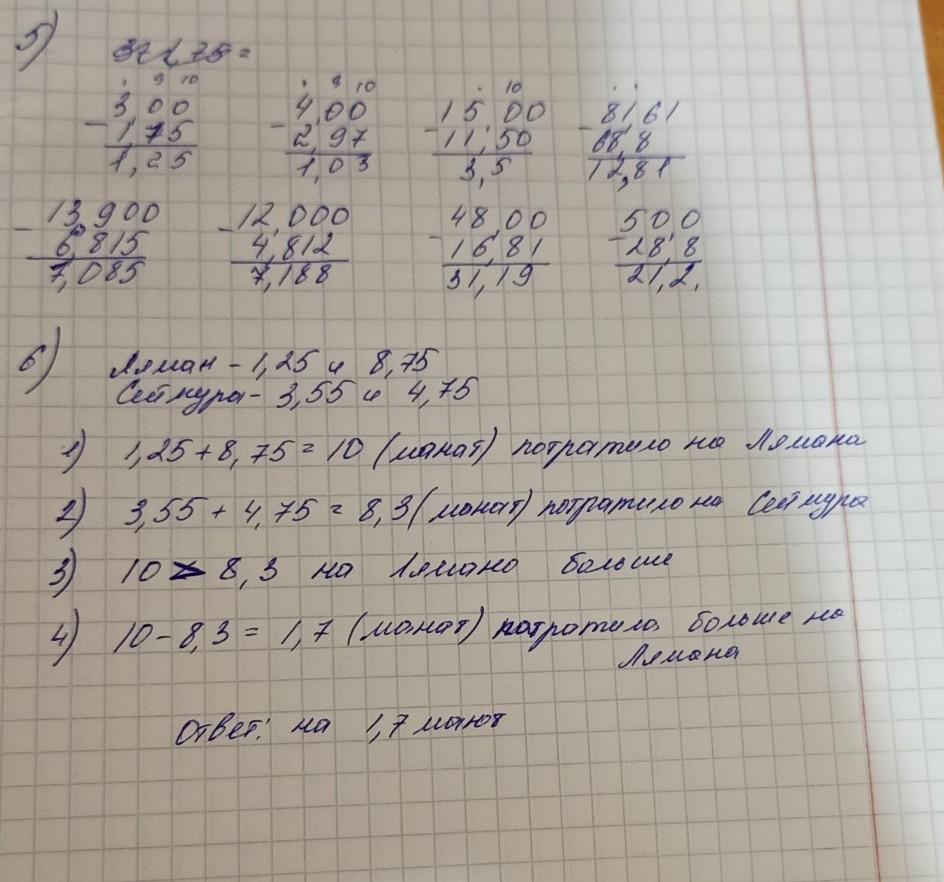 5)
3 00 4,00 15 00 81,61
1,75 2,97 11,50 68,8
1,25 1,03 3,5 12,81
13,900 12,000 48,00 500
6,815 4,812 16,81 28,8
7,085 7,188 31,19 21,2.
6) Ляман - 1,25 и 8,75
Сеймура - 3,55 и 4,75
1) 1,25 + 8,75 = 10 (манат) потратило на Лямана
2) 3,55 + 4,75 = 8,3 (манат) потратило на Сеймура
3) 10 > 8,3 на Лямано больше
4) 10 - 8,3 = 1,7 (манат) потратила больше на
Лямана
Ответ: на 1,7 манат